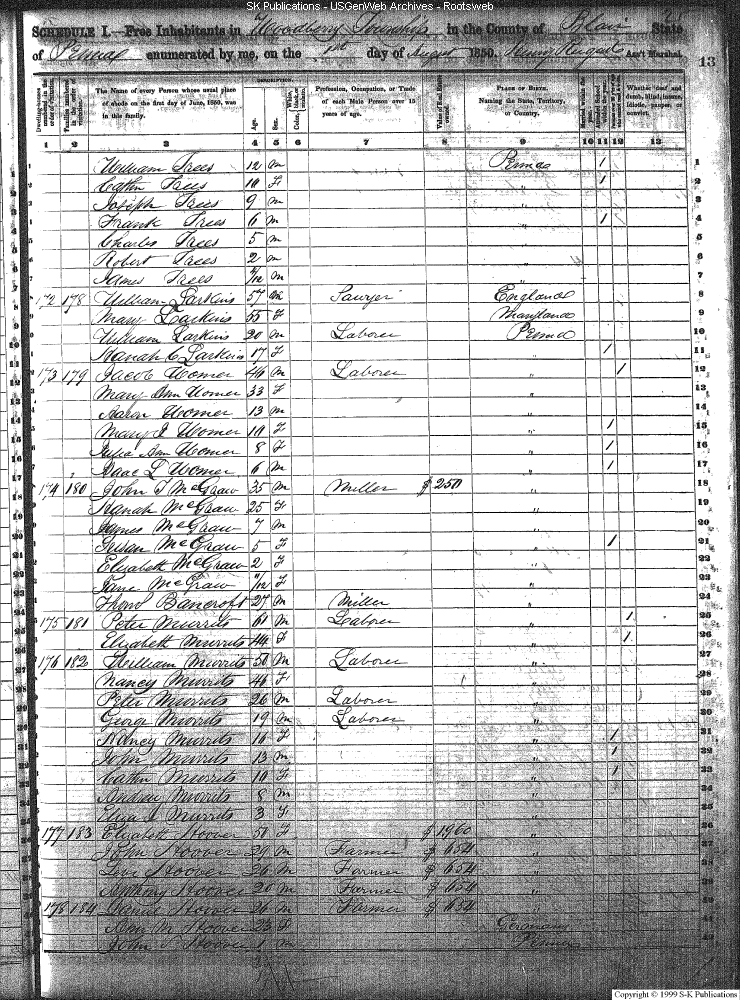 SK Publications - USGenWeb Archives - Rootsweb
SCHEDULE I.—Free Inhabitants in Woodberry Township in the County of Blair State
of Penna enumerated by me, on the 1st day of August 1850. Ass't Marshal.
13
Dwelling-houses numbered in the order of visitation.
Families numbered in the order of visitation.
The Name of every Person whose usual place of abode on the first day of June, 1850, was in this family.
DESCRIPTION.
Age.
Sex.
Color, White, black, or mulatto.
Profession, Occupation, or Trade of each Male Person over 15 years of age.
Value of Real Estate owned.
PLACE OF BIRTH. Naming the State, Territory, or Country.
Married within the year.
Attended School within the year.
Whether deaf and dumb, blind, insane, idiotic, pauper, or convict.
1 2 3 4 5 6 7 8 9 10 11 12 13
William Trees 12 m Penna 1 1
Cathn Trees 10 F " 1 2
Joseph Trees 9 m " 3
Frank Trees 6 m " 1 4
Charles Trees 5 m " 5
Robert Trees 2 m " 6
James Trees /12 m " 7
172 178 William Larkins 57 m Sawyer England 8
Mary Larkins 55 F Maryland 9
William Larkins 20 m Laborer Penna 10
Hanah C Larkins 17 F " 1 11
173 179 Jacob Womer 46 m Laborer " 1 12
Mary Ann Womer 33 F " 13
Aaron Womer 13 m " 14
Mary Womer 10 F " 1 15
Julia Ann Womer 8 F " 1 16
Isaac L Womer 6 m " 1 17
174 180 John T McGraw 35 m Miller $ 250 " 18
Hanah McGraw 25 F " 19
James McGraw 7 m " 20
Susan McGraw 5 F " 1 21
Elizabeth McGraw 2 F " 22
Jane McGraw /12 F " 23
Bancroft 27 m Miller " 24
175 181 Peter Murrits 61 m Laborer " 1 25
Elizabeth Murrits 44 F " 1 26
176 182 William Murrits 50 m Laborer " 27
Nancy Murrits 46 F " 28
Peter Murrits 26 m Laborer " 29
George Murrits 19 m Laborer " 30
Nancy Murrits F " 1 31
John Murrits 13 m " 1 32
Cathn Murrits 10 F " 1 33
Andrew Murrits 8 m " 34
Eliza Murrits 3 F " 35
177 183 Elizabeth Hoover 50 F $ 1960 " 36
John Hoover 29 m Farmer $ 654 " 37
Levi Hoover 26 m Farmer $ 654 " 38
Anthony Hoover 20 m Farmer $ 654 " 39
178 184 Daniel Hoover 26 m Farmer $ 654 " 40
Hoover 23 F Germany 41
John Hoover 1 m Penna 42
Copyright © 1999 S-K Publications